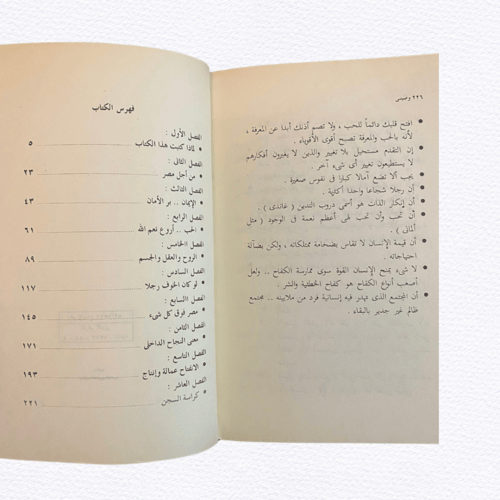 ٢٢٦ وصيتى
افتح قلبك دائماً للحب ، ولا تصم أذنك أبدا عن المعرفة ،
لأنه بالحب والمعرفة تصبح أقوى الأقوياء .
إن التقدم مستحيل بلا تغيير والذين لا يغيرون أفكارهم
لا يستطيعون تغيير أى شىء آخر .
يجب ألا تضع آمالا كبارا فى نفوس صغيرة .
أن رجلا شجاعا واحدا أكثرية .
أن إنكار الذات هو أسمى دروب التدين ( غاندى ) .
أن تُحب وأن تحب لهى أعظم نعمة فى الوجود ( مثل
ألمانى ) .
أن قيمة الإنسان لا تقاس بضخامة ممتلكاته ، ولكن بضآلة
احتياجاته .
لا شىء يمنح الإنسان القوة سوى ممارسة الكفاح .. ولعل
أصعب أنواع الكفاح هو كفاح الخطيئة والشر .
أن المجتمع الذى تهدر فيه إنسانية فرد من ملايينه .. مجتمع
ظالم غير جدير بالبقاء .
فهرس الكتاب
الفصل الأول :
لماذا كتبت هذا الكتاب ٥
الفصل الثانى :
من أجل مصر ٢٣
الفصل الثالث :
الإيمان .. بر الأمان ٤٣
الفصل الرابع :
الحب .. أروع نعم الله ٦١
الفصل الخامس :
الروح والعقل والجسم ٨٩
الفصل السادس :
لو كان الخوف رجلا ١١٧
الفصل السابع :
مصر فوق كل شىء ١٤٥
الفصل الثامن :
معنى النجاح الداخلى ١٧١
الفصل التاسع :
الانفتاح عمالة وإنتاج ١٩٣
الفصل العاشر :
كراسة السجن ٢٢١